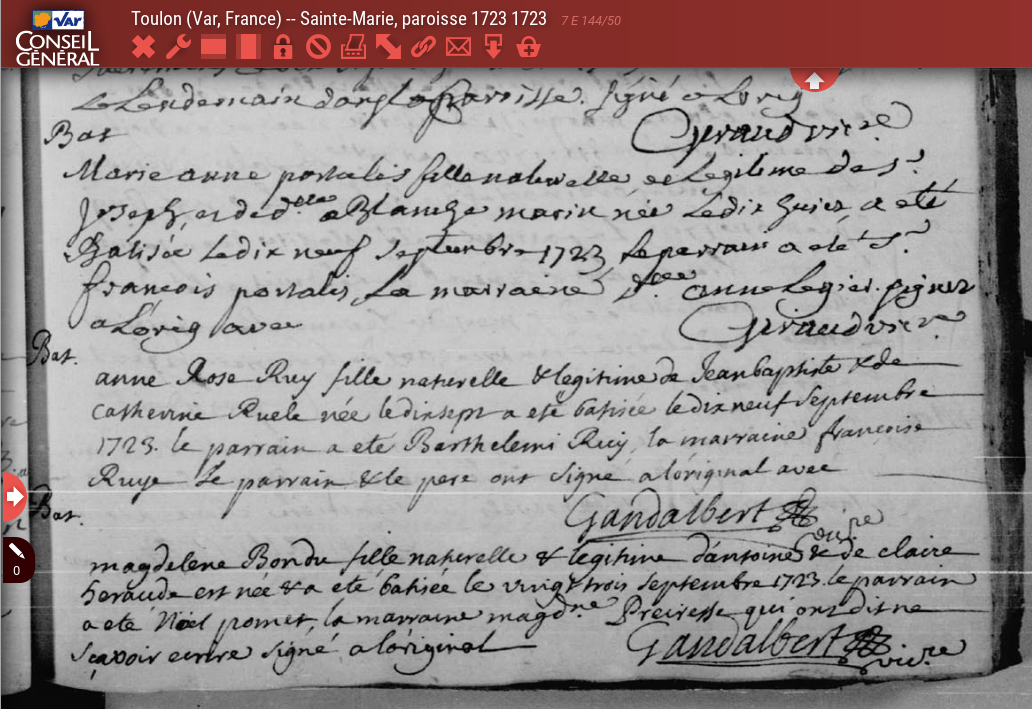 Var
CONSEIL
GÉNÉRAL
Toulon (Var, France) -- Sainte-Marie, paroisse 1723 1723 7 E 144/50
0
signé a Lorig
Bat
Giraud vicre
Marie anne portalis fille naturelle et Legitime de sr
Joseph et de dlle Blanche marin née Ledix huict a eté
Batisée Le dix neuf Septembre 1723 Le parrain a eté Sr
francois portalis, La marraine dlle anne Legier. signés
a Lorig avec Giraud vicre
Bat.
anne Rose Ruy fille naturelle & legitime de Jean baptiste & de
Catherine Ruele née le dixsept a eté batisée le dix neuf Septembre
1723. le parrain a eté Barthelemi Ruy, la marraine françoise
Ruye Le parrain & le pere ont signé a loriginal avec
Gandalbert vicre
Bat.
magdelene Bondu fille naturelle & legitime d'antoine & de claire
heraude est née & a eté batisée le vingt trois Septembre 1723. le parrain
a eté Noel pomet, la marraine magdne Preiresse qui ont dit ne
Sçavoir ecrire Signé a loriginal Gandalbert vicre